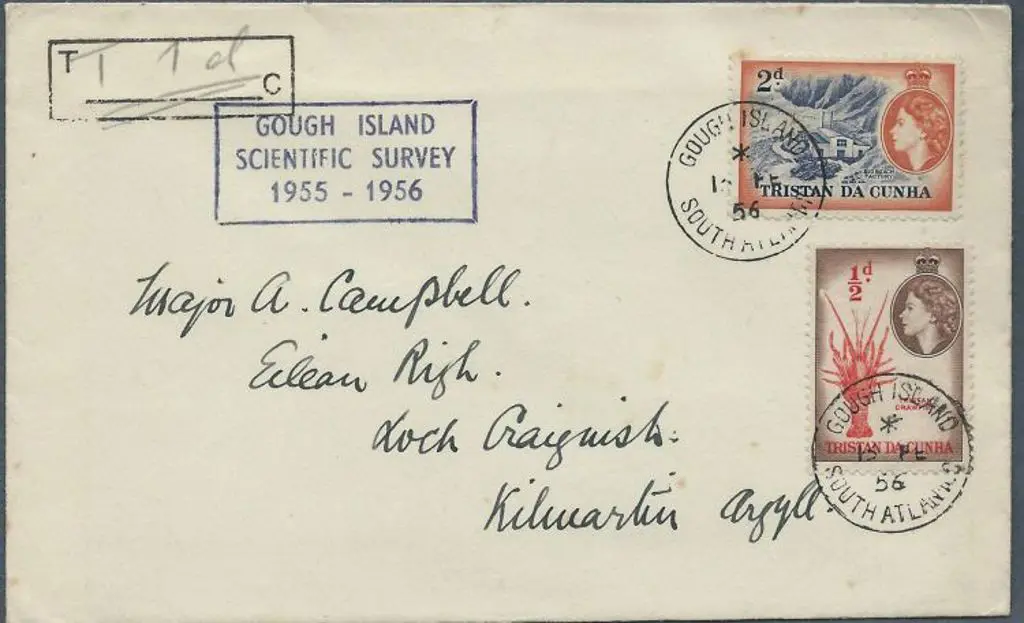 T T 1d
C
GOUGH ISLAND
SCIENTIFIC SURVEY
1955 - 1956
2d.
BIG BEACH
FACTORY
TRISTAN DA CUNHA
GOUGH ISLAND
*
FE
56
SOUTH ATLANTIC
½d.
CRAWFISH
TRISTAN DA CUNHA
GOUGH ISLAND
*
15 FE
56
SOUTH ATLANTIC
Major A. Campbell.
Eilean Righ.
Loch Craignish.
Kilmartin Argyll.